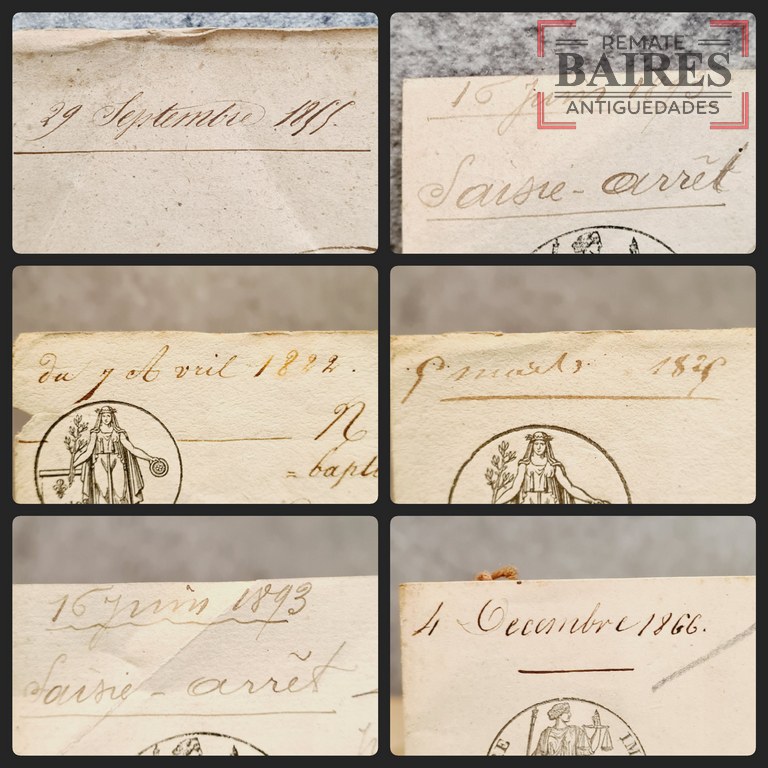 29 Septembre 1855.
REMATE
BAIRES
ANTIGUEDADES
16 Juin 1893
Saisie-arrêt
du 7 Avril 1822.
N
= bapt
5 mars 1825
16 juin 1893
Saisie-arrêt
4 Decembre 1866.
E IM